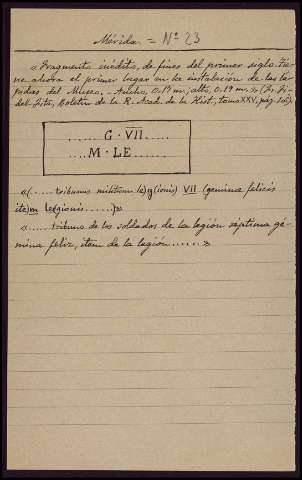 Mérida = Nº 23
« Fragmento inédito, de fines del primer siglo. Tie-
ne ahora el primer lugar en la instalación de las lá-
pidas del Museo. - Ancho, 0.17 m.; alto, 0.19 m. » (Fr. Fi-
del Fita, Boletín de la R. Acad. de la Hist., tomo XXV, pág.
...... G · VII
M · LE ......
«(...... tribunus militum le)g(ionis) VII (geminæ felicis
ite)m le(gionis ......)»
«...... tribuno de los soldados de la legión séptima gé-
mina feliz, item de la legión ...... »